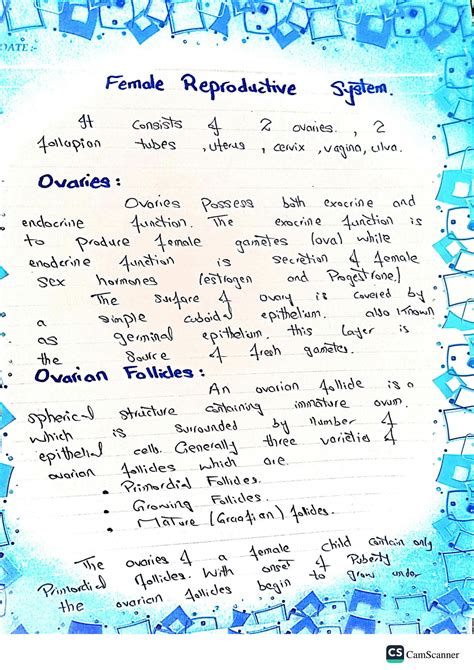 DATE :-
Female Reproductive System.
It consists of 2 ovaries., 2
follopian tubes ,uterus , cervix ,vagina, ulva.
Ovaries :
Ovaries Possess both exocrine and
endocrine function. The exocrine function is
to produce female gametes (ova) while
enodcrine function is secretion of female
sex hormones (estrogen and Progestrone)
The surfare of ovary is covered by
a simple cuboidal epithelium. also known
as germinal epithelium. this layer is
the source of fresh gametes.
Ovarian Follicles :
An ovarian follicle is a
spherical structure containing immature ovum.
which is surrounded by number of
epithelial cells. Generally three varieties of
ovarian follicles which are.
• Primordial Follicles.
• Growing Follicles.
• Mature (Graafian) follicles.
The ovaries of a female child contain only
Primordial follicles. With onset of Puberty
the ovarian follicles begin to grow under
CS CamScanner